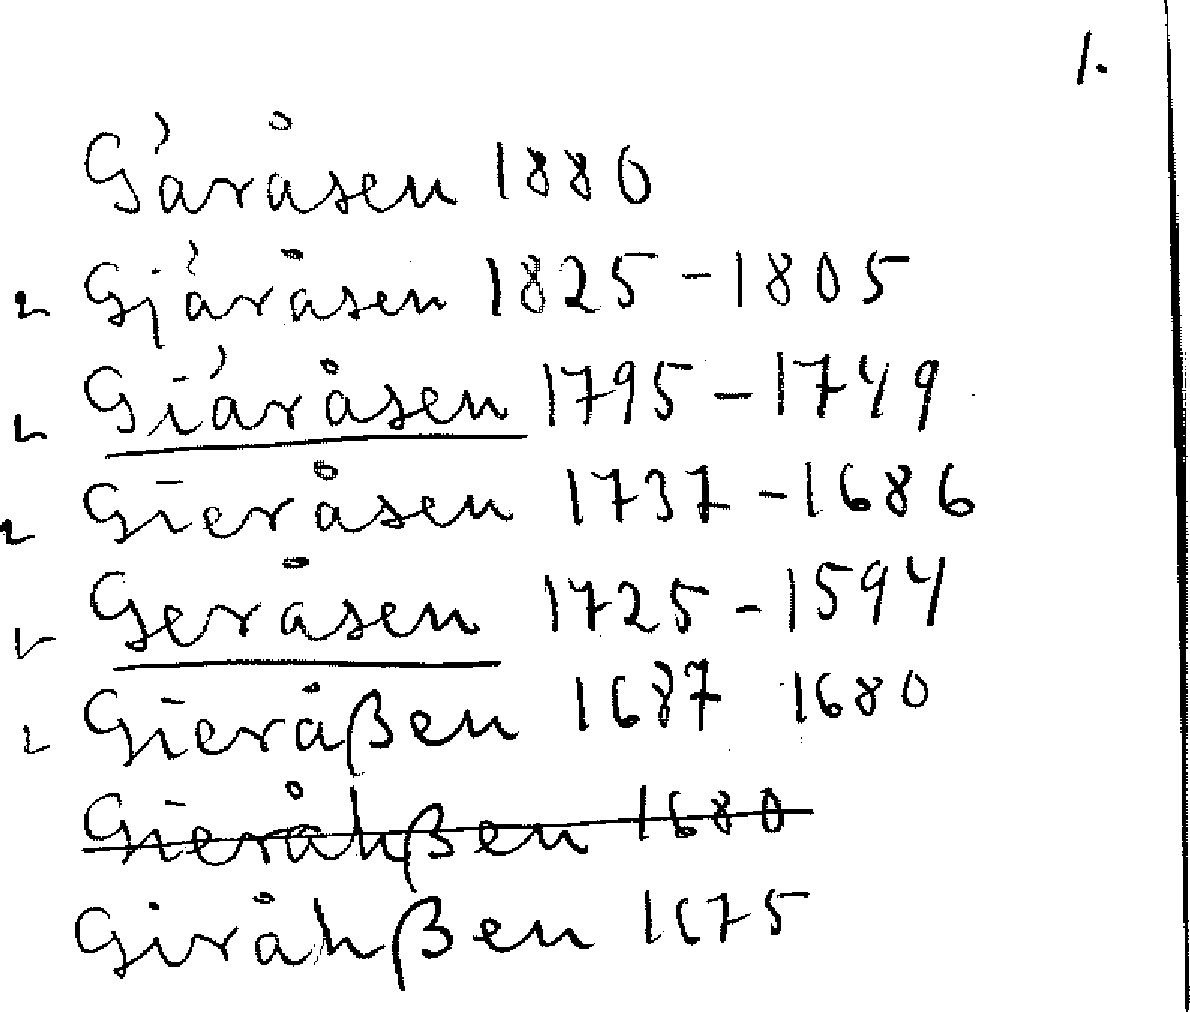 1.
Gáråsen 1880
Gjáråsen 1825-1805
Giáråsen 1795-1749
Gieråsen 1737-1686
Geråsen 1725-1594
Gieråßen 1687 1680
Gieråhßen 1680
Giråhßen 1675